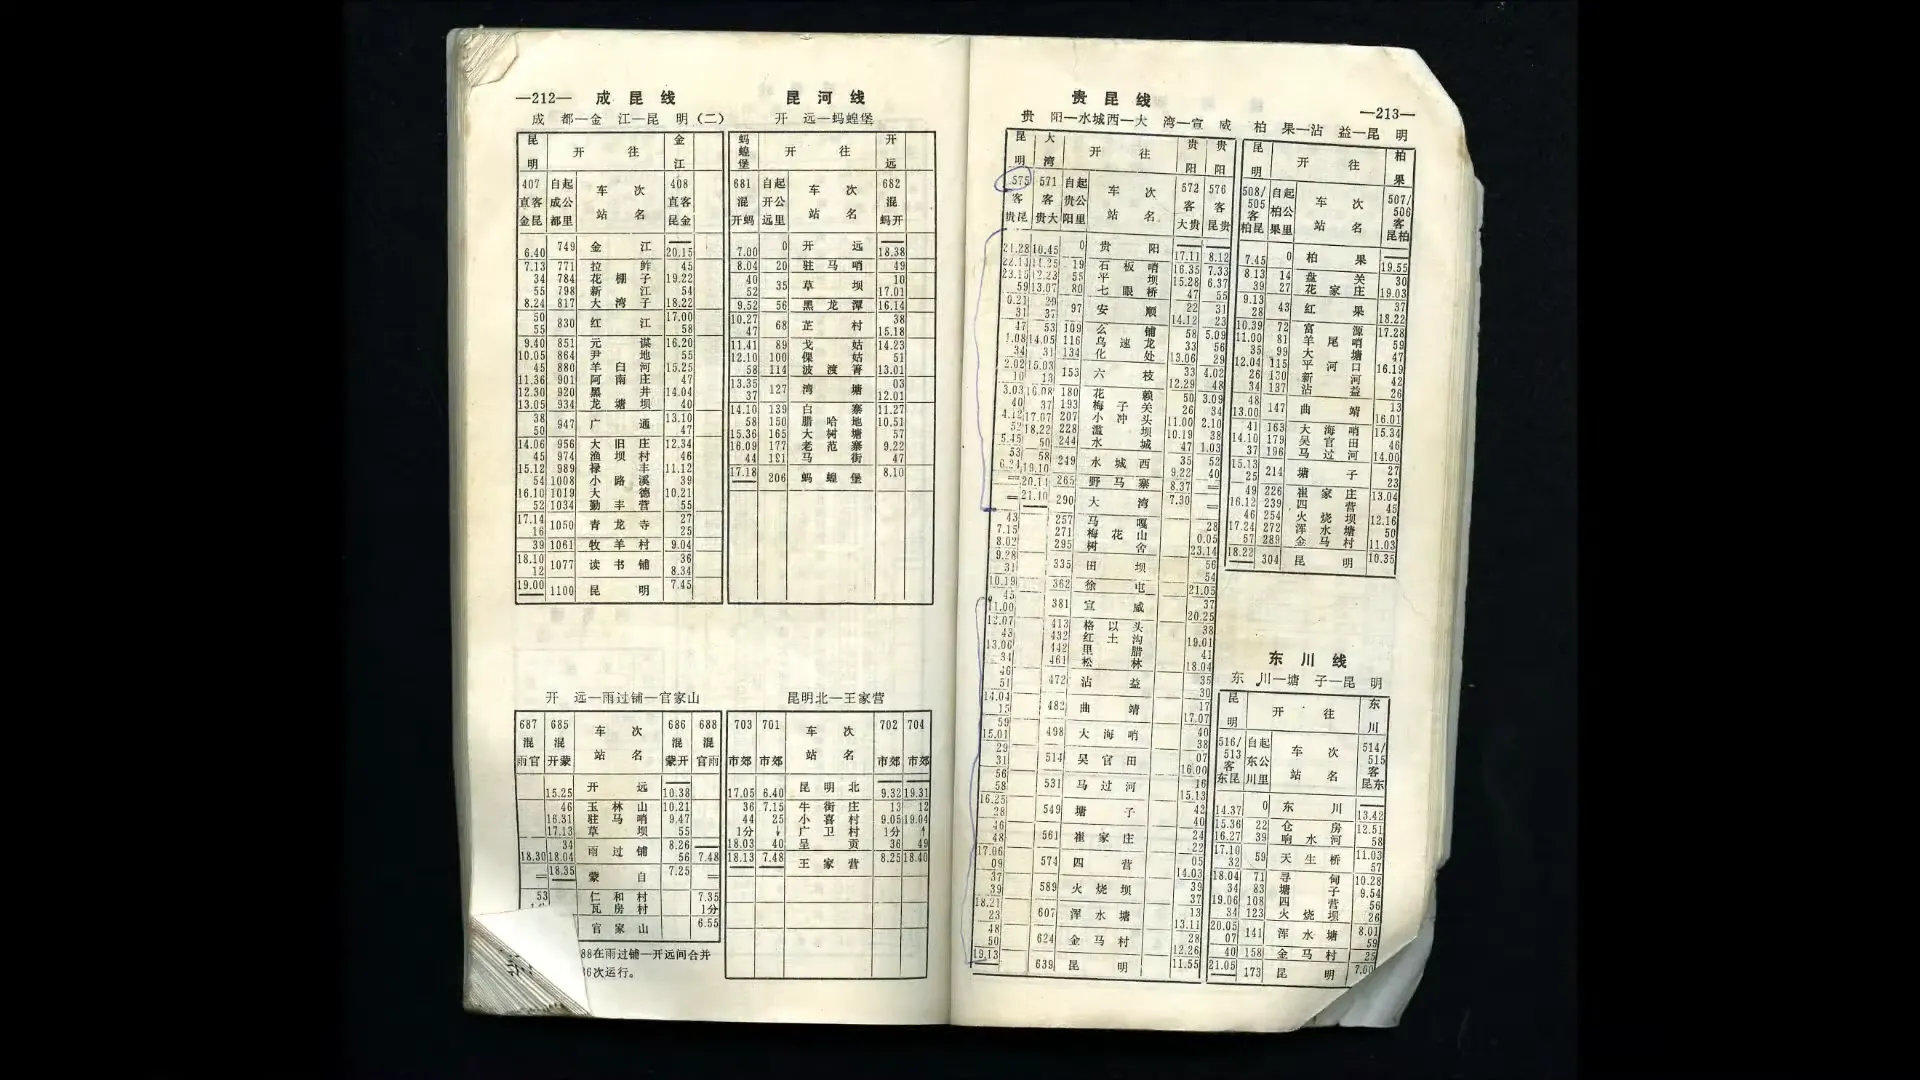 —212— 成昆线
成都—金江—昆明(二)
昆明 开往 金江
407 自起 车次 408
直客 成公 直客
金昆 都里 站名 昆金
6.40 749 金江 20.15
7.13 771 拉鲊 45
34 784 花棚子 19.22
55 798 新江 54
8.24 817 大湾子 18.22
50 17.00
55 830 红江 58
9.40 851 元谋 16.20
10.05 864 尹地 55
45 880 羊臼河 15.25
11.36 901 阿南庄 47
12.30 920 黑井 14.04
13.05 934 龙塘坝 40
38 13.10
50 947 广通 47
14.06 956 大旧庄 12.34
45 974 渔坝村 46
15.12 989 禄丰 11.12
54 1008 小路溪 39
16.10 1019 大德 10.21
52 1034 勤丰营 55
17.14 27
16 1050 青龙寺 25
39 1061 牧羊村 9.04
18.10 36
12 1077 读书铺 8.34
19.00 1100 昆明 7.45
昆河线
开远—蚂蝗堡
蚂蝗堡 开往 开远
681 自起 车次 682
混 开公 混
开蚂 远里 站名 蚂开
7.00 0 开远 18.38
8.04 20 驻马哨 49
40 10
52 35 草坝 17.01
9.52 56 黑龙潭 16.14
10.27 38
47 68 芷村 15.18
11.41 89 戈姑 14.23
12.10 100 倮姑 51
58 114 波渡箐 13.01
13.35 03
37 127 湾塘 12.01
14.10 139 白寨 11.27
58 150 腊哈地 10.51
15.36 165 大树塘 57
16.09 177 老范寨 9.22
44 181 马街 47
17.18 206 蚂蝗堡 8.10
开远—雨过铺—官家山
687 685 车次 686 688
混 混 混 混
雨官 开蒙 站名 蒙开 官雨
15.25 开远 10.38
46 玉林山 10.21
16.31 驻马哨 9.47
17.13 草坝 55
34 8.26
18.30 18.04 雨过铺 56 7.48
18.35 蒙自 7.25
53 仁和村 7.35
瓦房村 1分
官家山 6.55
88在雨过铺—开远间合并
86次运行。
昆明北—王家营
703 701 车次 702 704
市郊 市郊 站名 市郊 市郊
17.05 6.40 昆明北 9.32 19.31
36 7.15 牛街庄 13 12
44 25 小喜村 9.05 19.04
1分 ↓ 广卫村 1分 ↑
18.03 40 呈贡 36 49
18.13 7.48 王家营 8.25 18.40
贵昆线 —213—
贵阳—水城西—大湾—宣威
昆明 大湾 开往 贵阳 贵阳
575 571 自起 车次 572 576
客 客 贵公 客 客
贵昆 贵大 阳里 站名 大贵 昆贵
21.28 10.45 0 贵阳 17.11 8.12
22.13 11.25 19 石板哨 16.35 7.33
23.15 12.23 55 平坝 15.28 6.37
59 13.07 80 七眼桥 47 55
0.21 29 22 31
31 37 97 安顺 14.12 23
47 53 109 么铺 58 5.09
1.08 14.05 116 乌速龙 33 56
34 31 134 化处 13.06 29
2.02 15.03 33 4.02
10 13 153 六枝 12.29 48
3.03 16.08 180 花赖 50 3.09
40 37 193 梅子关 26 34
4.12 17.07 207 小冲头 11.00 2.10
52 18.22 228 滥坝 10.19 38
5.45 50 244 水城 47 1.03
53 58 35 52
6.24 19.10 249 水城西 9.22 40
20.11 265 野马寨 8.37
21.10 290 大湾 7.30
43 257 马嘎 28
7.15 271 梅花山 0.05
8.02 295 树舍 23.14
9.28 56
31 335 田坝 54
10.19 362 徐屯 21.05
45 37
11.00 381 宣威 20.25
12.07 413 格以头 38
43 432 红土沟 19.01
13.06 442 里腊 41
34 461 松林 18.04
46 35
51 472 沾益 30
14.04 17
15 482 曲靖 17.07
59 40
15.01 498 大海哨 38
29 07
31 514 吴官田 16.00
56 16
58 531 马过河 15.13
16.25 42
28 549 塘子 40
46 24
48 561 崔家庄 22
17.06 05
09 574 四营 14.03
37 39
39 589 火烧坝 37
18.21 13
23 607 浑水塘 13.11
48 28
50 624 金马村 12.26
19.13 639 昆明 11.55
柏果—沾益—昆明
昆明 开往 柏果
508/505 自起 车次 507/506
客 柏公 客
柏昆 果里 站名 昆柏
7.45 0 柏果 19.55
8.13 14 盘关 30
39 27 花家庄 19.03
9.13 37
28 43 红果 18.22
10.39 72 富源 17.28
11.00 81 羊尾哨 59
35 99 大塘 47
12.04 115 平河口 16.19
26 130 新河 42
34 137 沾益 26
48 13
13.00 147 曲靖 16.01
41 163 大海哨 15.34
14.10 179 吴官田 46
37 196 马过河 14.00
15.13 27
25 214 塘子 23
49 226 崔家庄 13.04
16.12 239 四营 45
46 254 火烧坝 12.16
17.24 272 浑水塘 50
57 289 金马村 11.03
18.22 304 昆明 10.35
东川线
东川—塘子—昆明
昆明 开往 东川
516/513 自起 车次 514/515
客 东公 客
东昆 川里 站名 昆东
14.37 0 东川 13.42
15.36 22 仓房 12.51
16.27 39 响水河 58
17.10 11.03
32 59 天生桥 57
18.04 71 寻甸 10.28
34 83 塘子 9.54
19.06 108 四营 56
34 123 火烧坝 26
20.05 8.01
07 141 浑水塘 59
40 158 金马村 25
21.05 173 昆明 7.00